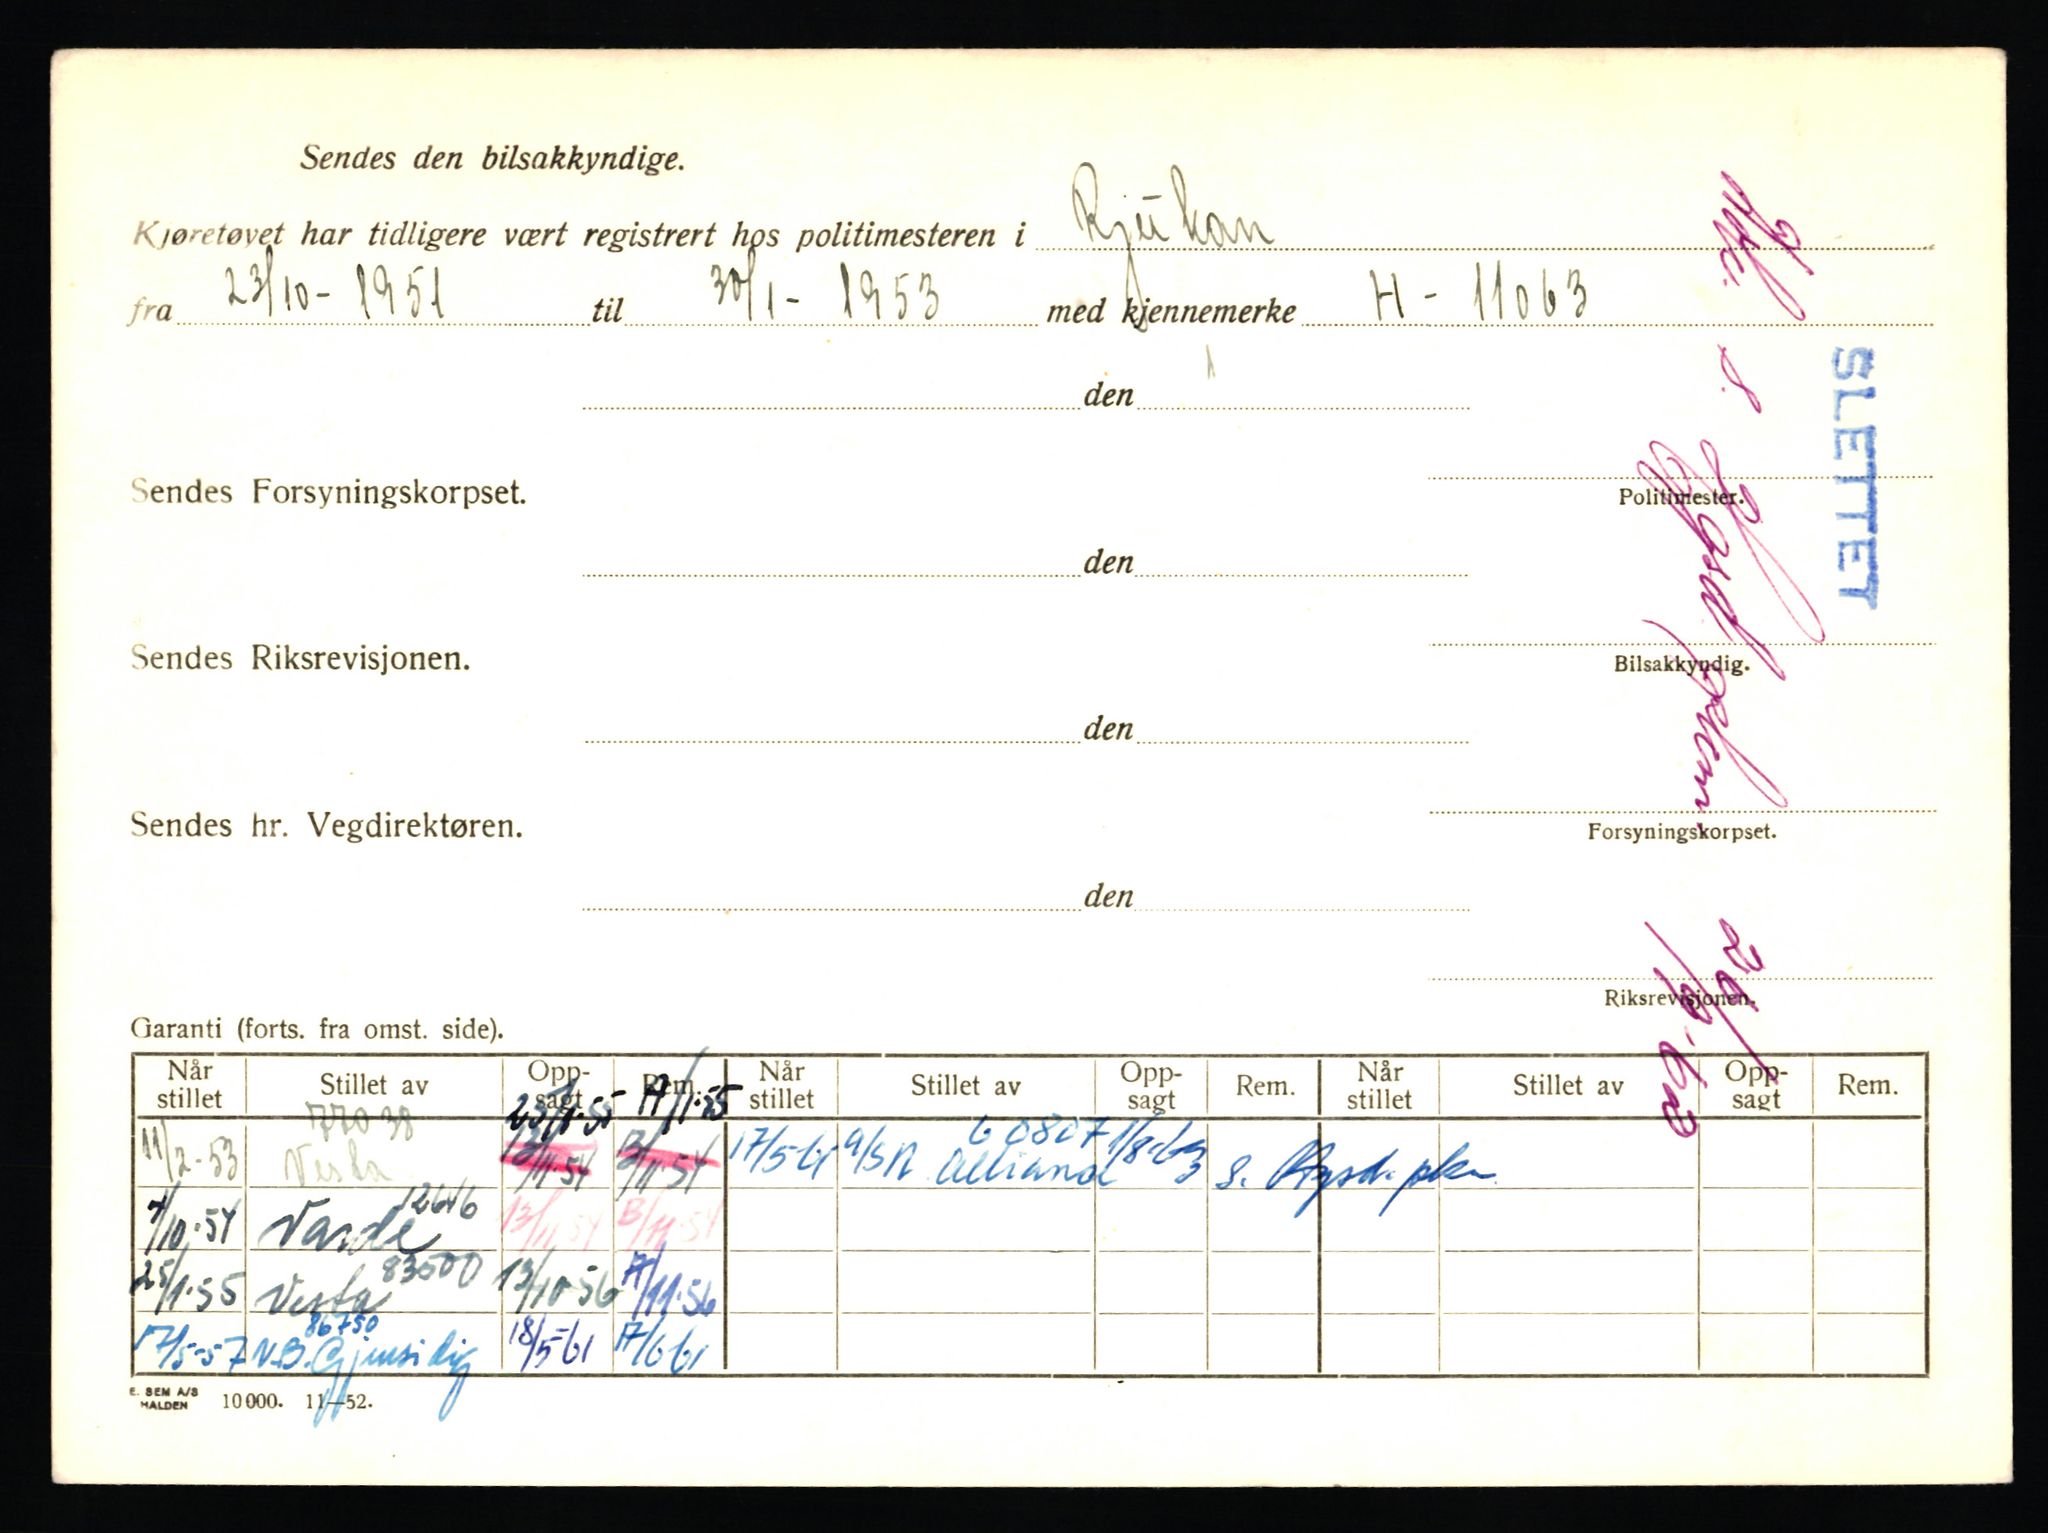 Sendes den bilsakkyndige.
Kjøretøyet har tidligere vært registrert hos politimesteren i Rjukan
fra 23/10 - 1951 til 30/1 - 1953 med kjennemerke H - 11063
den
Sendes Forsyningskorpset.
Politimester.
den
Sendes Riksrevisjonen.
Bilsakkyndig.
den
Sendes hr. Vegdirektøren.
Forsyningskorpset.
den
Riksrevisjonen.
SLETTET
Garanti (forts. fra omst. side).
Når stillet Stillet av Opp-sagt Rem. Når stillet Stillet av Opp-sagt Rem. Når stillet Stillet av Opp-sagt Rem.
77038 23/1-55 17/1-55
11/2-53 Vesta 13/11-54 13/11-54 17/5-61 60807 1/8-63 S.
7/10-54 Varde 12646 13/11-54 13/11-54
25/1-55 Vesta 83500 13/10-56 17/11-56
17/5-57 N.B. Gjensidig 86750 18/5-61 17/6 61
E. SEM A/S HALDEN 10000. 11—52.